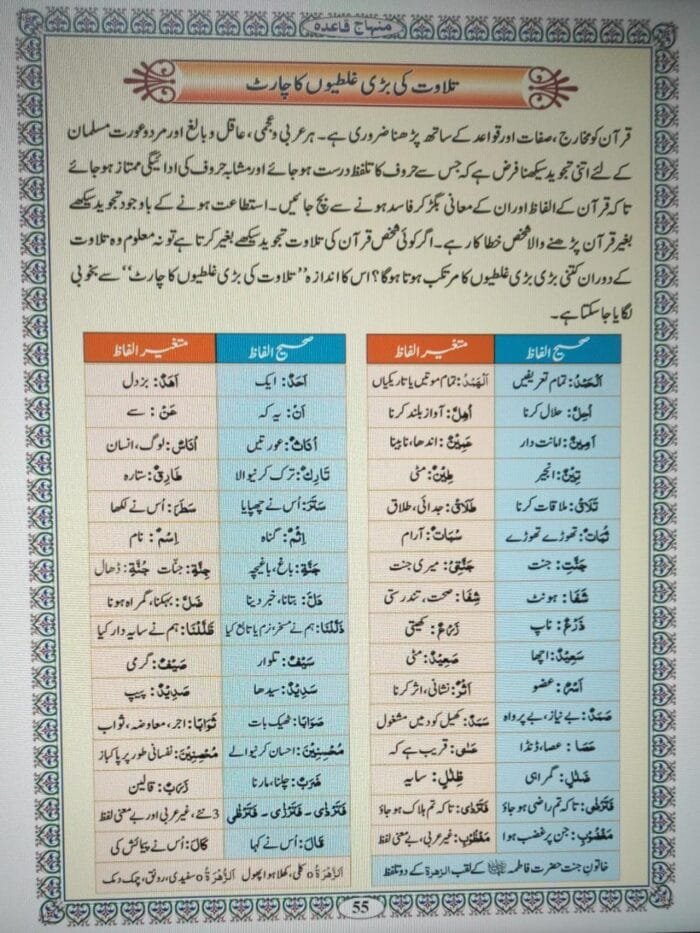 منہاج قاعدہ
تلاوت کی بڑی غلطیوں کا چارٹ
قرآن کو مخارج، صفات اور قواعد کے ساتھ پڑھنا ضروری ہے۔ ہر عربی و عجمی، عاقل و بالغ اور مرد و عورت مسلمان
کے لئے اتنی تجوید سیکھنا فرض ہے کہ جس سے حروف کا تلفظ درست ہو جائے اور مشابہ حروف کی ادائیگی ممتاز ہو جائے
تاکہ قرآن کے الفاظ اور ان کے معانی بگڑ کر فاسد ہونے سے بچ جائیں۔ استطاعت ہونے کے باوجود تجوید سیکھے
بغیر قرآن پڑھنے والا شخص خطا کار ہے۔ اگر کوئی شخص قرآن کی تلاوت تجوید سیکھے بغیر کرتا ہے تو نہ معلوم وہ تلاوت
کے دوران کتنی بڑی بڑی غلطیوں کا مرتکب ہوتا ہوگا؟ اس کا اندازہ ’’تلاوت کی بڑی غلطیوں کا چارٹ‘‘ سے بخوبی
لگایا جا سکتا ہے۔
صحیح الفاظ متغیر الفاظ صحیح الفاظ متغیر الفاظ
اَلْحَمْدُ: تمام تعریفیں اَلْهَمْدُ: تمام موتیں یا تاریکیاں اَحَدٌ: ایک اَهَدٌّ: بزدل
اُحِلَّ: حلال کرنا اُهِلَّ: آواز بلند کرنا اَنْ: یہ کہ عَنْ: سے
اٰمِيْنٌ: امانت دار عَمِيْنٌ: اندھا، نابینا اُنَاثٌ: عورتیں اُنَاسٌ: لوگ، انسان
تِيْنٌ: انجیر طِيْنٌ: مٹی تَارِكٌ: ترک کرنیوالا طَارِقٌ: ستارہ
تَلَاقٌ: ملاقات کرنا طَلَاقٌ: جدائی، طلاق سَتَرَ: اُس نے چھپایا سَطَرَ: اُس نے لکھا
ثُبَاتٌ: تھوڑے تھوڑے سُبَاتٌ: آرام اِثْمٌ: گناہ اِسْمٌ: نام
جَنَّتِ: جنت جَنَّتِيْ: میری جنت جَنَّةٌ: باغ، باغیچہ جِنَّةٌ: جنّات جُنَّةٌ: ڈھال
شَفَا: ہونٹ شِفَا: صحت، تندرستی دَلَّ: بتانا، خبر دینا ضَلَّ: بہکنا، گمراہ ہونا
ذَرْعٌ: ناپ زَرْعٌ: کھیتی ذَلَّلْنَا: ہم نے مسخر، نرم یا تابع کیا ظَلَّلْنَا: ہم نے سایہ دار کیا
سَعِيْدٌ: اچھا صَعِيْدٌ: مٹی سَيْفٌ: تلوار صَيْفٌ: گرمی
اَسْرٌ: عضو اَثَرٌ: نشانی، اثر کرنا سَدِيْدٌ: سیدھا صَدِيْدٌ: پیپ
صَمَدٌ: بے نیاز، بے پرواہ سَمَدٌ: کھیل کود میں مشغول صَوَابًا: ٹھیک بات ثَوَابًا: اجر، معاوضہ، ثواب
عَصَا: عصا، ڈنڈا عَسٰى: قریب ہے کہ مُحْسِنِيْنَ: احسان کرنیوالے مُحْصِنِيْنَ: نفسانی طور پر پاکباز
ضَلٰلٍ: گمراہی ظِلٰلٍ: سایہ ضَرَبَ: چلنا، مارنا زَرَبَ: قالین
فَتَرْضٰى: تاکہ تم راضی ہو جاؤ فَتَرْدٰى: تاکہ تم ہلاک ہو جاؤ فَتَرْذٰى۔ فَتَرْزٰى۔ فَتَرْظٰى 3 نئے، غیر عربی اور بے معنی لفظ
مَغْضُوْبِ: جن پر غضب ہوا مَغْظُوْبِ: غیر عربی، بے معنی لفظ قَالَ: اُس نے کہا كَالَ: اُس نے پیمائش کی
خاتونِ جنت حضرت فاطمہ ﷞ کے لقب الزهرة کے دو تلفظ اَلزَّهْرَةُ o کلی، کھلا ہوا پھول اَلزُّهْرَةُ o سفیدی، رونق، چمک دمک
55